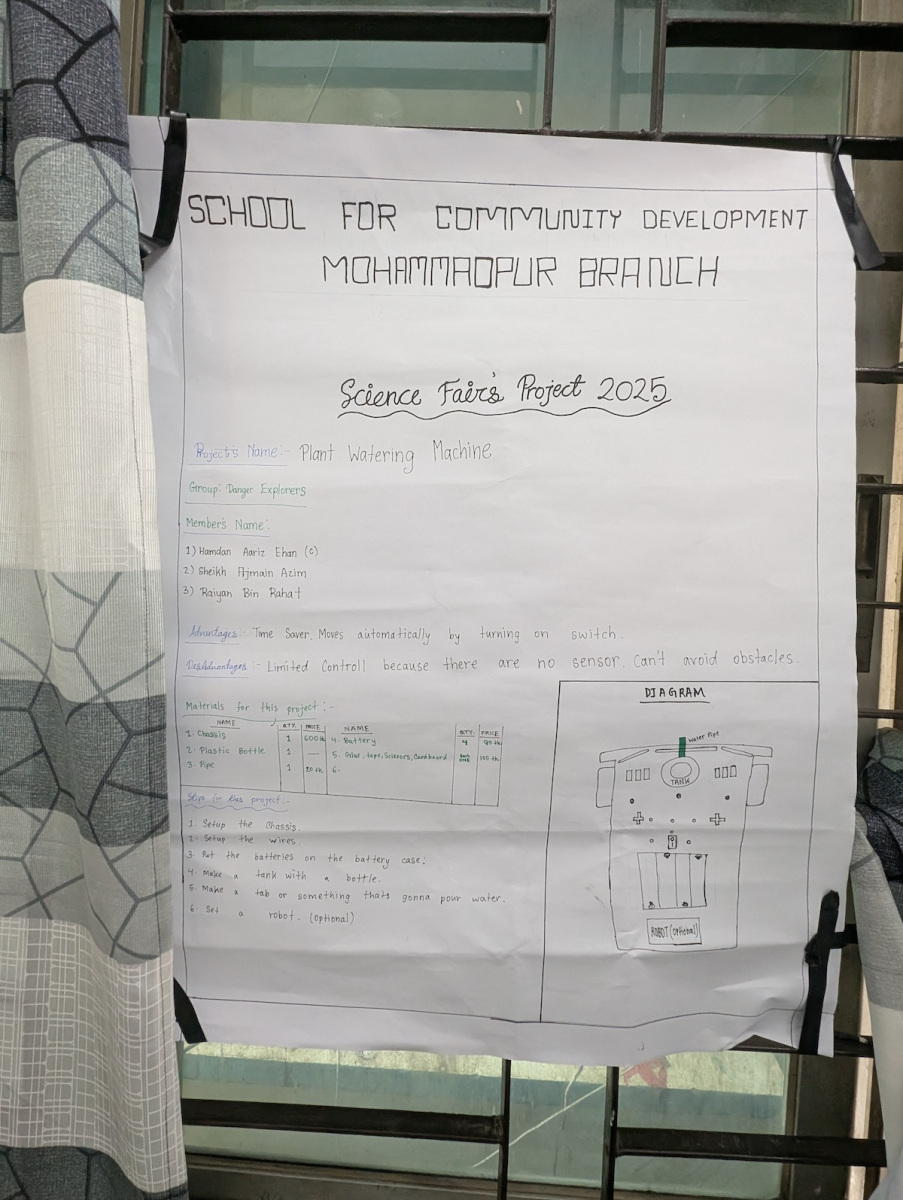 SCHOOL FOR COMMUNITY DEVELOPMENT
MOHAMMADPUR BRANCH
Science Fair's Project 2025
Project's Name:- Plant Watering Machine
Group: Danger Explorers
Member's Name:
1) Hamdan Aariz Ehan (c)
2) Sheikh Ajmain Azim
3) Raiyan Bin Rahat
Advantages:- Time Saver. Moves automatically by turning on switch.
Desadvantages:- Limited Controll because there are no sensor. Can't avoid obstacles.
Materials for this project:-
NAME QTY. PRICE NAME QTY. PRICE
1. Chassis 1 600 tk 4. Battery 4
2. Plastic Bottle 1 — 5. Tape, Scissors, Cardboard
3. Pipe 1 20 tk 6.
Steps for this project:-
1. Setup the Chassis.
2. Setup the wires.
3. Put the batteries on the battery case.
4. Make a tank with a bottle.
5. Make a tab or something thats gonna pour water.
6. Set a robot. (Optional)
DIAGRAM
Water Pipe
TANK
ROBOT (Optional)